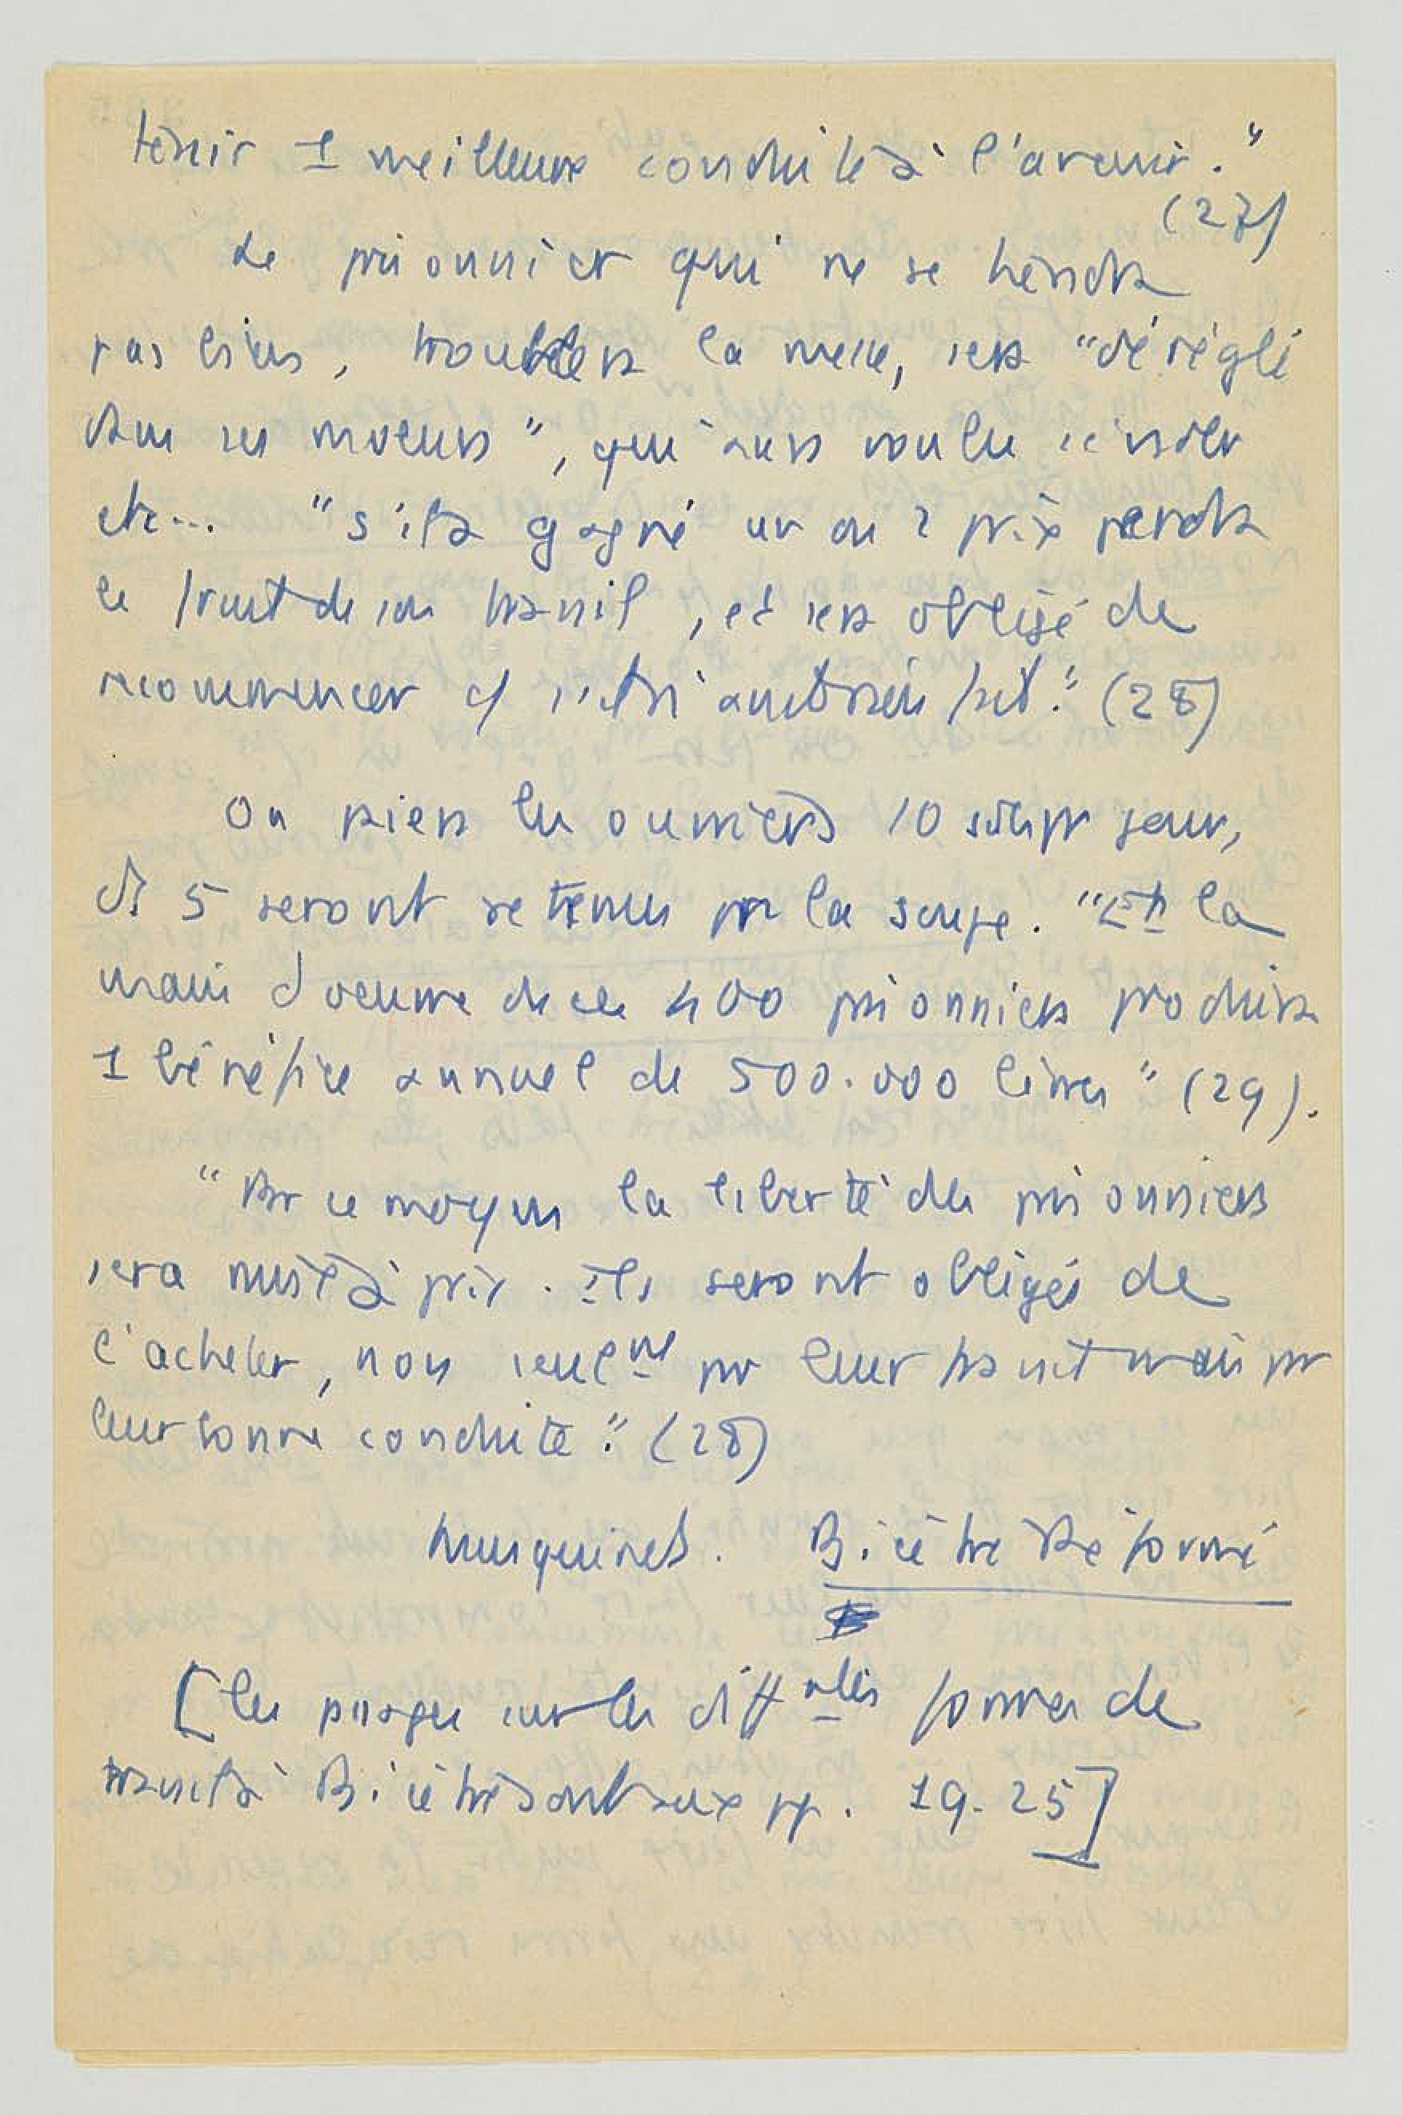 tenir 1 meilleure conduite à l'avenir."
(27)
Le prisonnier qui ne se tiendra
pas bien, troublera la messe, sera "déréglé
dans ses moeurs", qui aura voulu s'évader
etc... "s'il a gagné un ou 2 prix perdra
le fruit de son travail, et sera obligé de
recommencer c/ s'il n'avait rien fait." (28)
On paiera les ouvriers 10 sols pr jour,
dt 5 seront retenus pr la soupe. "Et la
main d'oeuvre de ces 400 prisonniers produira
1 bénéfice annuel de 500.000 livres" (29).
"Par ce moyen la liberté des prisonniers
sera mise à prix. Ils seront obligés de
l'acheter, non seulnt par leur travail mais par
leur bonne conduite." (28)
Musquinet. Bicêtre Réformé
[les pages sur les difftes formes de
travail à Bicêtre sont aux pp. 19-25]